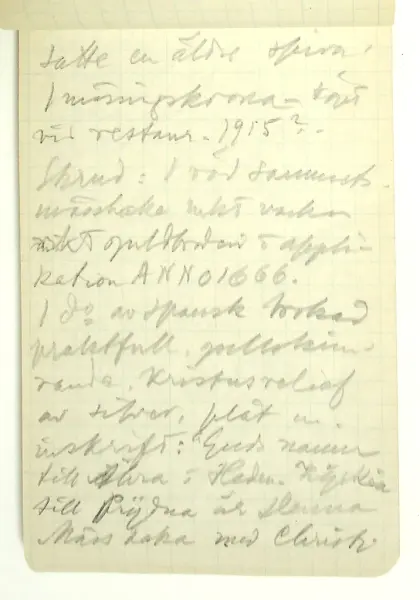 satte en äldre spira.
1 mässingskrona - köpt
vid restaur. 1915?.
Skrud: 1 röd sammets
mässhake rikt vacker
rikt guldbroderi o appli-
kation ANNO 1666.
1 do av spansk brokad
praktfull, guldskim-
rande, Kristusrelief
av silver, plåt m.
inskrift: "Guds namn
till Ähra o Heder. Kyrckia
till Prydna är denna
Mäss haka med Christi